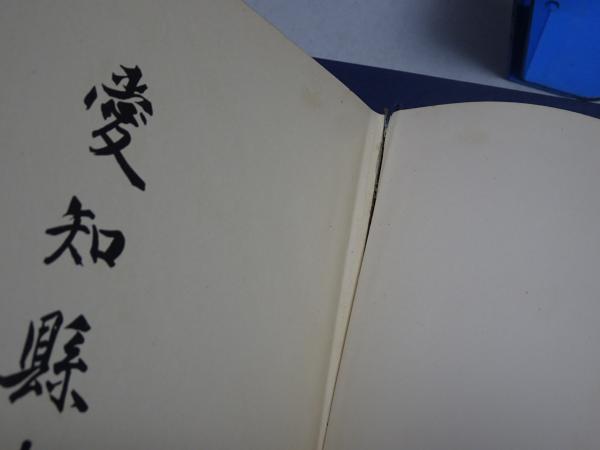 愛知縣